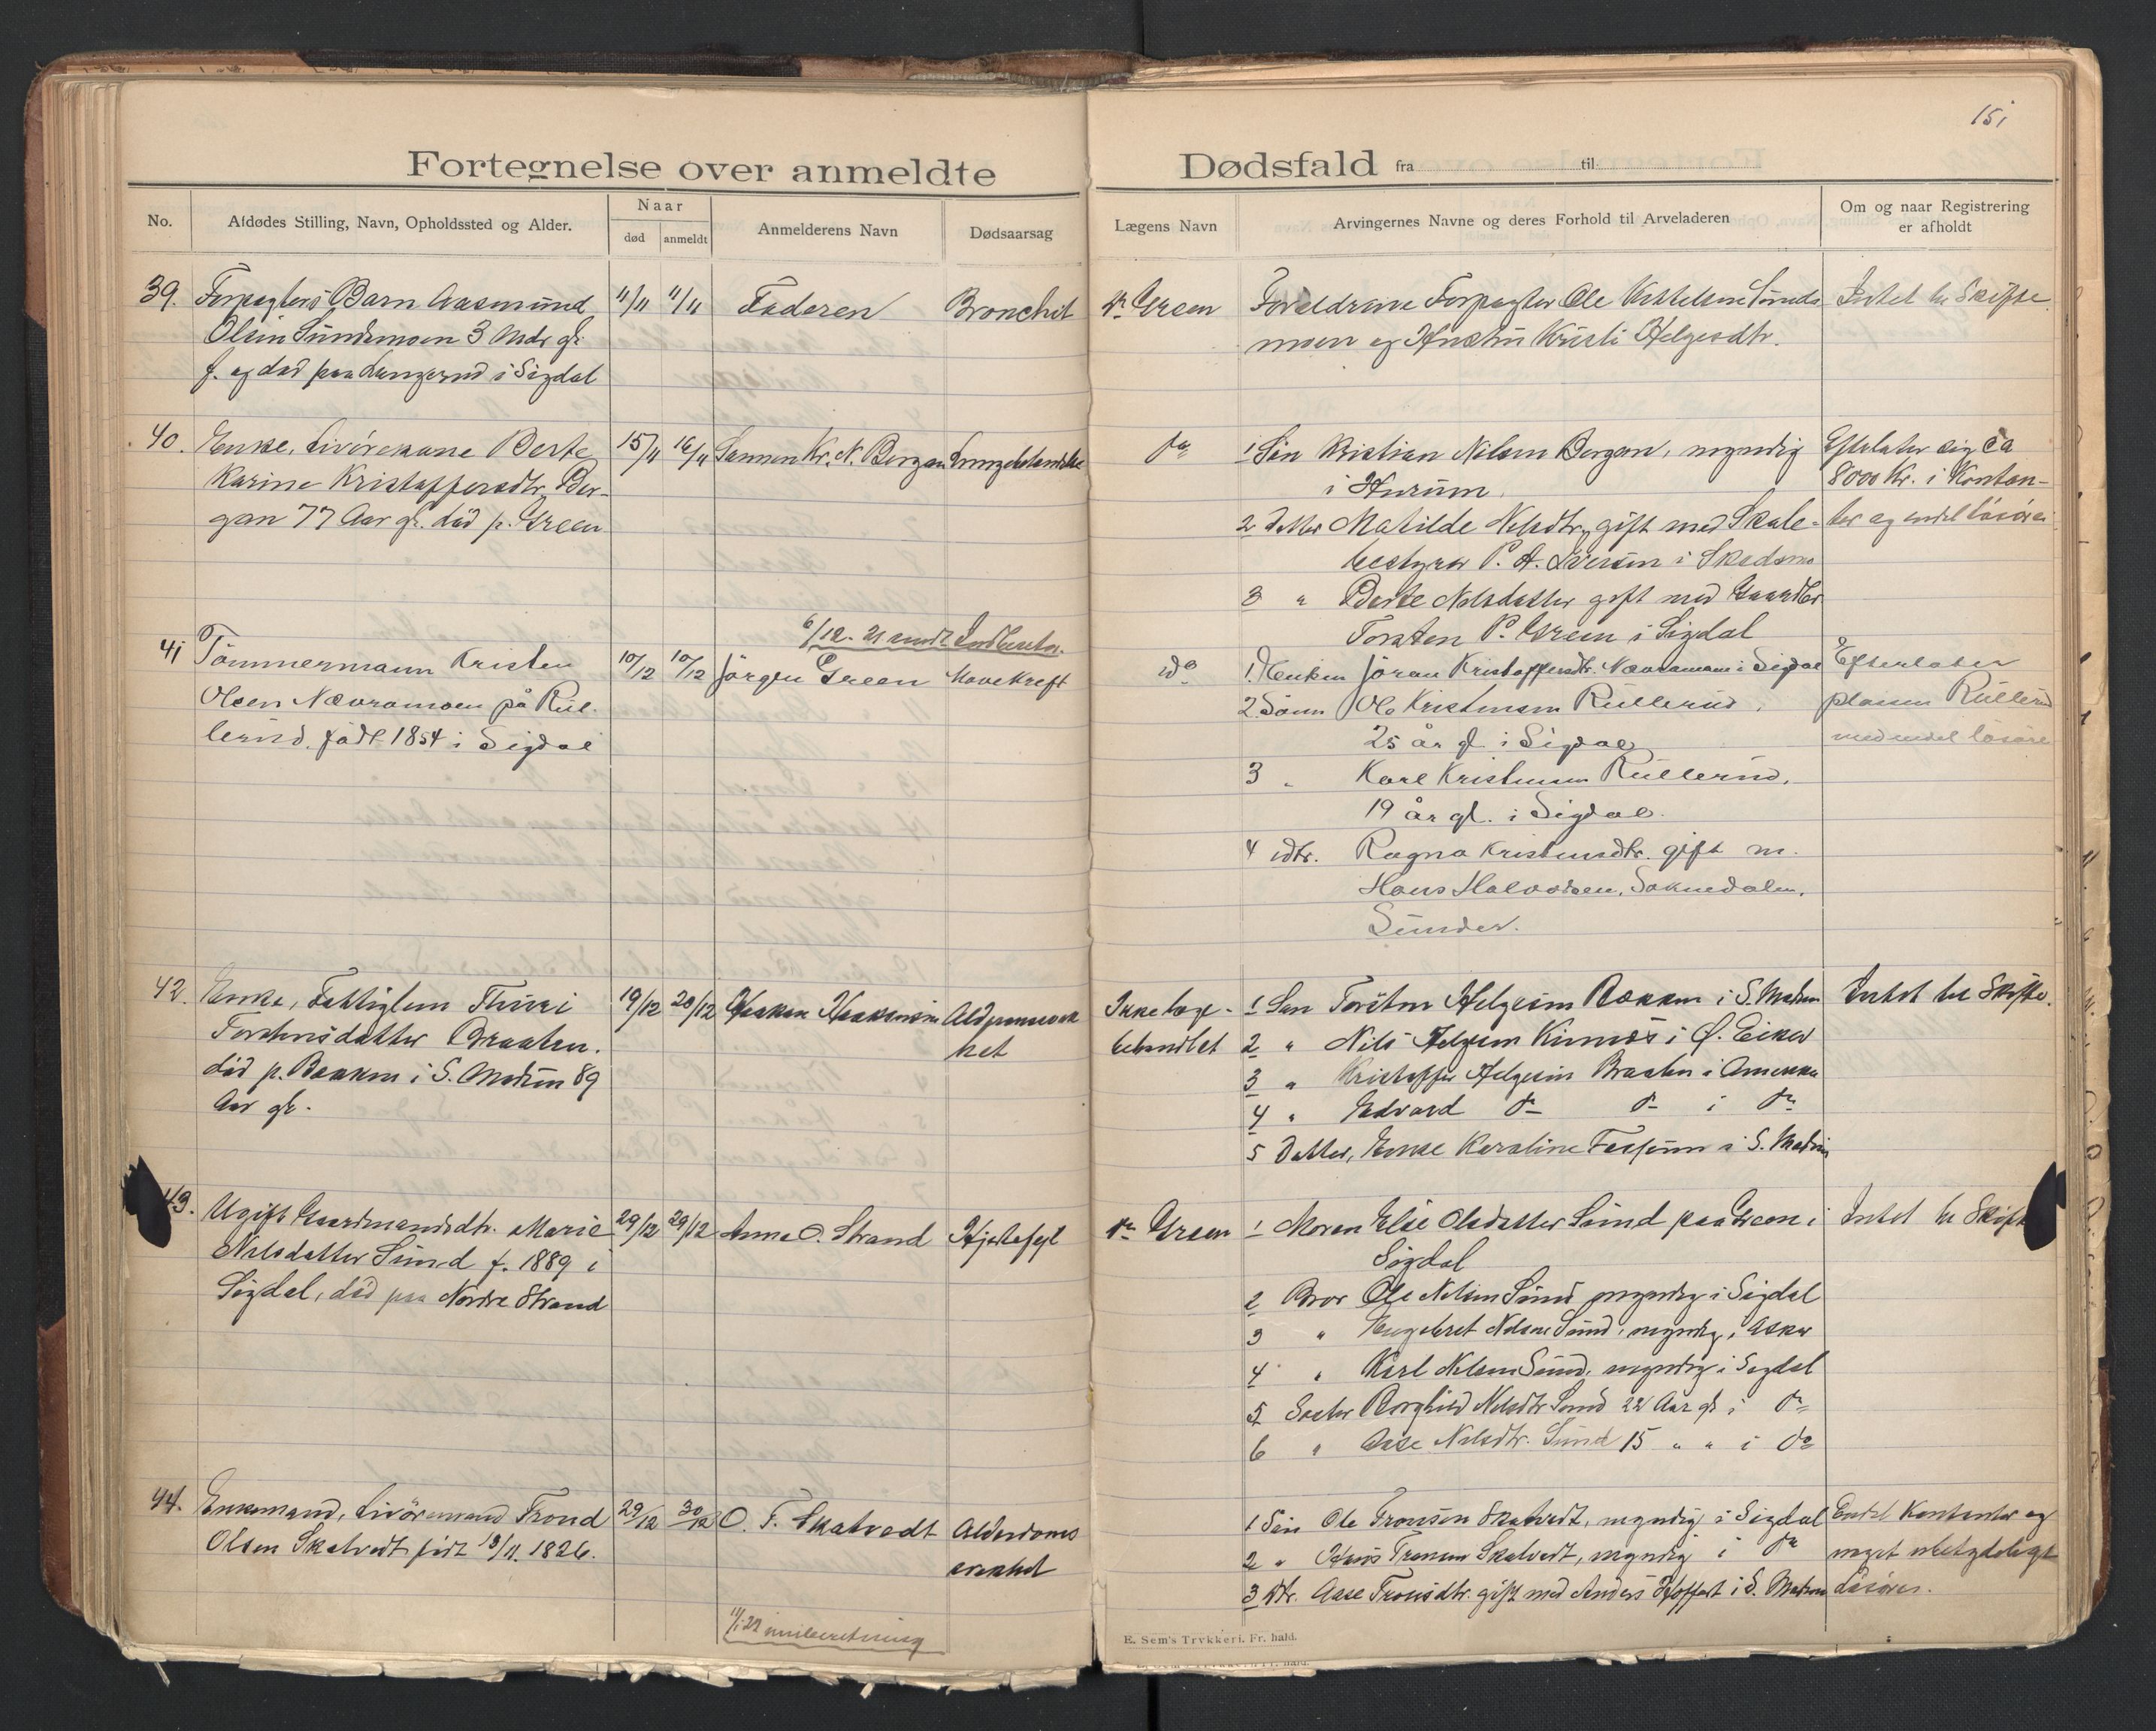 151
Fortegnelse over anmeldte Dødsfald fra til
No.
Afdødes Stilling, Navn, Opholdssted og Alder.
Naar
død
anmeldt
Anmelderens Navn
Dødsaarsag
Lægens Navn
Arvingernes Navne og deres Forhold til Arveladeren
Om og naar Registrering
er afholdt
39. Forpagters Barn Aasmund
Olsen Sundemoen 3 Mdr gl.
f. og död paa Langerud i Sigdal
4/11 4/11 Faderen Bronchit
Dr Green
Foreldrene Forpagter Ole Kittelsen Sunde
moen og Hustru Kristi Helgesdtr.
Intet til Skifte
40. Enke, Livörekone Berte
Karine Kristoffersdtr. Ber-
gan 77 Aar gl. död p. Green
15/11 16/11 Sønnen Kr. N. Bergan Lungebetændelse
do
1 Sön Kristian Nilsen Bergan, myndig
i Hurum.
2 Datter Matilde Nilsdtr, gift med Skole-
bestyrer P. A. Iversen i Skedsmo
3 " Berte Nilsdatter gift med Gaardbr
Torsten P. Green i Sigdal
Efterlater sig ca
8000 Kr. i Kontan-
ter og endel lösöre
6/12. 21 sendt Indberetn.
41 Tömmermann Kristen
Olsen Nævramoen på Rul-
lerud. födt 1854 i Sigdal
10/12 10/12 Jörgen Green Mavekreft
do
1. Enken Jöran Kristoffersdtr. Nævramoen i Sigdal
2. Sönn Ole Kristensen Rullerud,
25 år gl. i Sigdal
3 " Karl Kristensen Rullerud,
19 år gl. i Sigdal.
4 dtr. Ragna Kristensdtr. gift m.
Hans Halvorsen, Soknedalen,
Efterlater
plassen Rullerud
med endel lösöre
42. Enke, Fattiglem Thuri
Torstensdatter Braaten.
död p. Bakken i S. Modum 89
Aar gl.
19/12 20/12 Haakon Haakensen
Ikke læge-
behandlet
1 Sön Torsten Helgesen Bakken i S. Modum
2 " Nils Helgesen i Ø. Eiker
3 " Kristoffer Helgesen Braaten i Amerika
4 " Edvard do do i do
5 Datter, Enke Karoline i S. Modum
Intet til Skifte.
43. Ugift Gaardmandsdtr. Marie
Nilsdatter Sund f. 1889 i
Sigdal, död paa Nordre Strand
29/12 29/12 Anna O. Strand Hjertefejl
Dr Green
1 Moren Else Olsdatter Sund paa Green i
Sigdal
2 Bror Ole Nilsen Sund myndig i Sigdal
3 " Engebret Nilsen Sund, myndig, i Asker
4 " Karl Nilsen Sund, myndig i Sigdal
5 Söster Borghild Nilsdtr Sund 22 Aar gl i do
6 " Aase Nilsdtr. Sund 15 " " i do
Intet til Skifte
44. Enkemand, Livöremand Trond
Olsen Skatvedt födt 13/11. 1826.
29/12 30/12 O. T. Skatvedt Alderdoms
svakhet
1 Sön Ole Tronsen Skatvedt, myndig i Sigdal
2 " Hans Tronsen Skatvedt, myndig i do
3 Dtr. Aase Tronsdtr. gift med Anders Hoffart i S. Modum
Endel Kontanter og
meget ubetydeligt
Lösöre.
E. Sem's Trykkeri. Fr. hald.